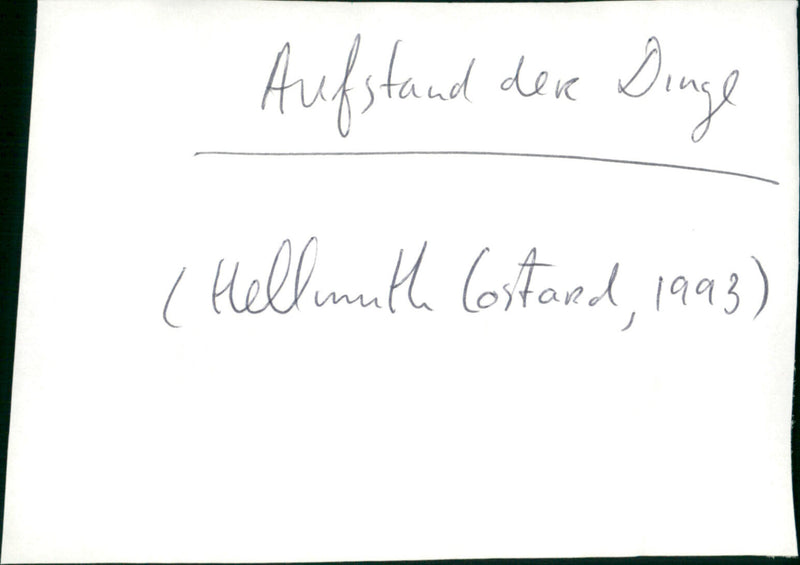 Aufstand der Dinge
(Hellmuth Costard, 1993)